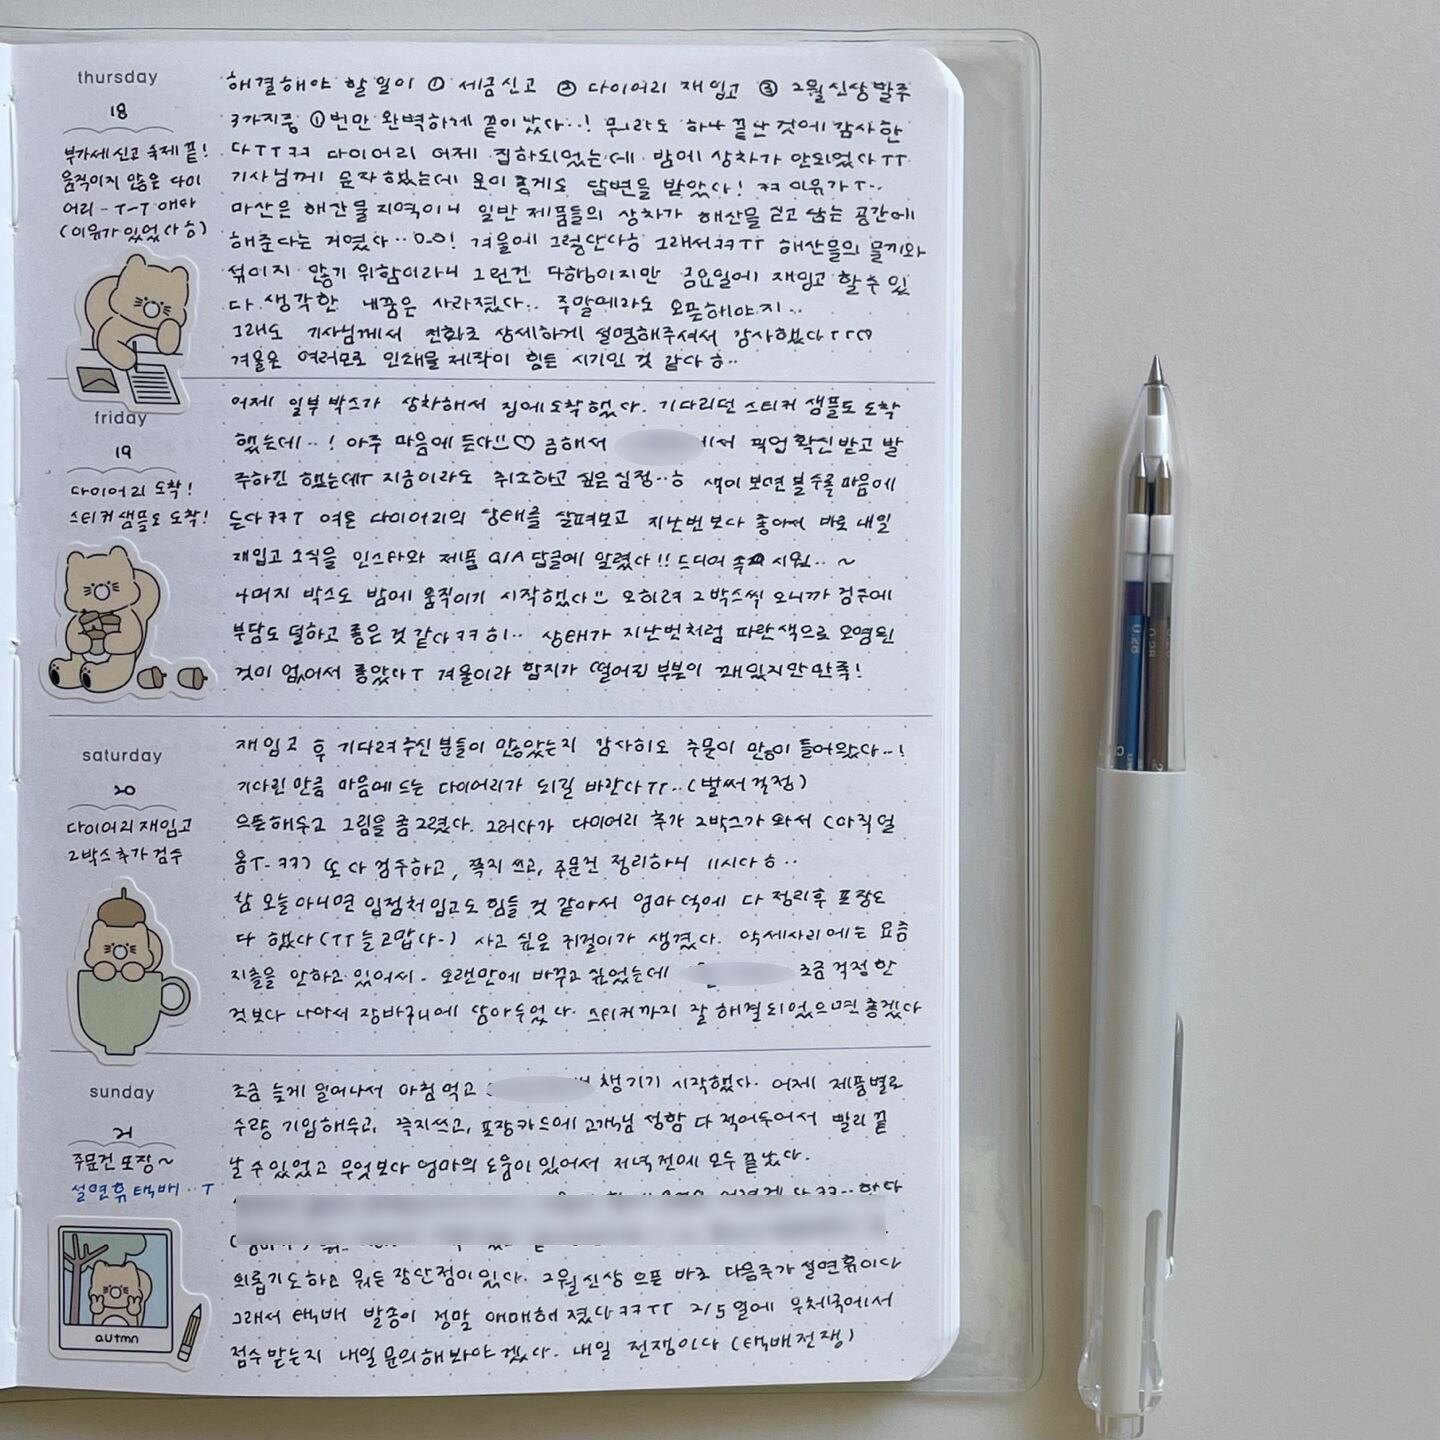 thursday
18
부가세 신고 숙제 끝!
움직이지 않은 다이
어리 - T-T 애마
(이유가 있었다ㅎ)
해결해야 할 일이 ① 세금신고 ② 다이어리 재입고 ③ 2월 신상 발주
3가지중 ①번만 완벽하게 끝이 났다..! 뭐라도 하나 끝난 것에 감사한
다TT ㅋㅋ 다이어리 어제 집하되었는데 밤에 상차가 안되었다TT
기사님께 문자했는데 운이 좋게도 답변을 받았다! ㅋㅋ 이유가T..
마산은 해산물 지역이니 일반 제품들의 상차가 해산물 싣고 남는 공간에
해준다는 거였다..0_0! 겨울에 그렇단다ㅎ 그래서ㅋㅋTT 해산물의 물기와
섞이지 않기 위함이라니 그런건 다행이지만 금요일에 재입고 할 수 있
다 생각한 내꿈은 사라졌다.. 주말에라도 오픈해야지..
그래도 기사님께서 전화로 상세하게 설명해주셔서 감사했다TT♡
겨울은 여러모로 인쇄물 제작이 힘든 시기인 것 같다ㅎ..
friday
19
다이어리 도착!
스티커 샘플도 도착!
어제 일부 박스가 상차해서 집에 도착했다. 기다리던 스티커 샘플도 도착
했는데..! 아주 마음에 든다!!♡ 급해서 에서 픽업 확신받고 발
주하긴 했는데T 지금이라도 취소하고 싶은 심정..ㅎ 색이 보면 볼수록 마음에
든다ㅋㅋT 여튼 다이어리의 상태를 살펴보고 지난번 보다 좋아서 바로 내일
재입고 소식을 인스타와 제품 Q/A 답글에 알렸다!! 드디어 속 시원.. ~
나머지 박스도 밤에 움직이기 시작했다!! 오히려 2박스씩 오니까 검수에
부담도 덜하고 좋은 것 같다ㅋㅋ 히.. 상태가 지난번처럼 파란색으로 오염된
것이 없어서 좋았다T 겨울이라 합지가 떨어진 부분이 꽤있지만 만족!
saturday
20
다이어리 재입고
2박스 추가 검수
재입고 후 기다려주신 분들이 많았는지 감사히도 주문이 많이 들어왔다..!
기다린 만큼 마음에 드는 다이어리가 되길 바란다TT..(벌써 걱정)
오픈해두고 그림을 좀 그렸다. 그러다가 다이어리 추가 2박스가 와서 (아직 얼
음T- ㅋㅋ) 또 다 검수하고, 쪽지 쓰고, 주문건 정리하니 11시다ㅎ..
참 오늘 아니면 입점처 입고도 힘들 것 같아서 엄마 덕에 다 정리후 포장도
다 했다(TT 늘 고맙다-) 사고 싶은 귀걸이가 생겼다. 악세사리에는 요즘
지출을 안하고 있어서. 오랜만에 바꾸고 싶었는데 조금 걱정한
것보다 나아서 장바구니에 담아두었다. 스티커까지 잘 해결되었으면 좋겠다
sunday
21
주문건 포장~
설연휴 택배.. T
조금 늦게 일어나서 아침 먹고 챙기기 시작했다. 어제 제품별로
수량 기입해두고, 쪽지쓰고, 포장카드에 고객님 성함 다 적어두어서 빨리 끝
날 수 있었고 무엇보다 엄마의 도움이 있어서 저녁 전에 모두 끝났다.
의롭기도하고 뭐든 장단점이 있다. 2월 신상 오픈 바로 다음주가 설연휴이다
그래서 택배 발송이 정말 애매해졌다ㅋㅋTT 2/5일에 우체국에서
접수 받는지 내일 문의해봐야겠다. 내일 전쟁이다 (택배전쟁)
autmn
0.28
0.28